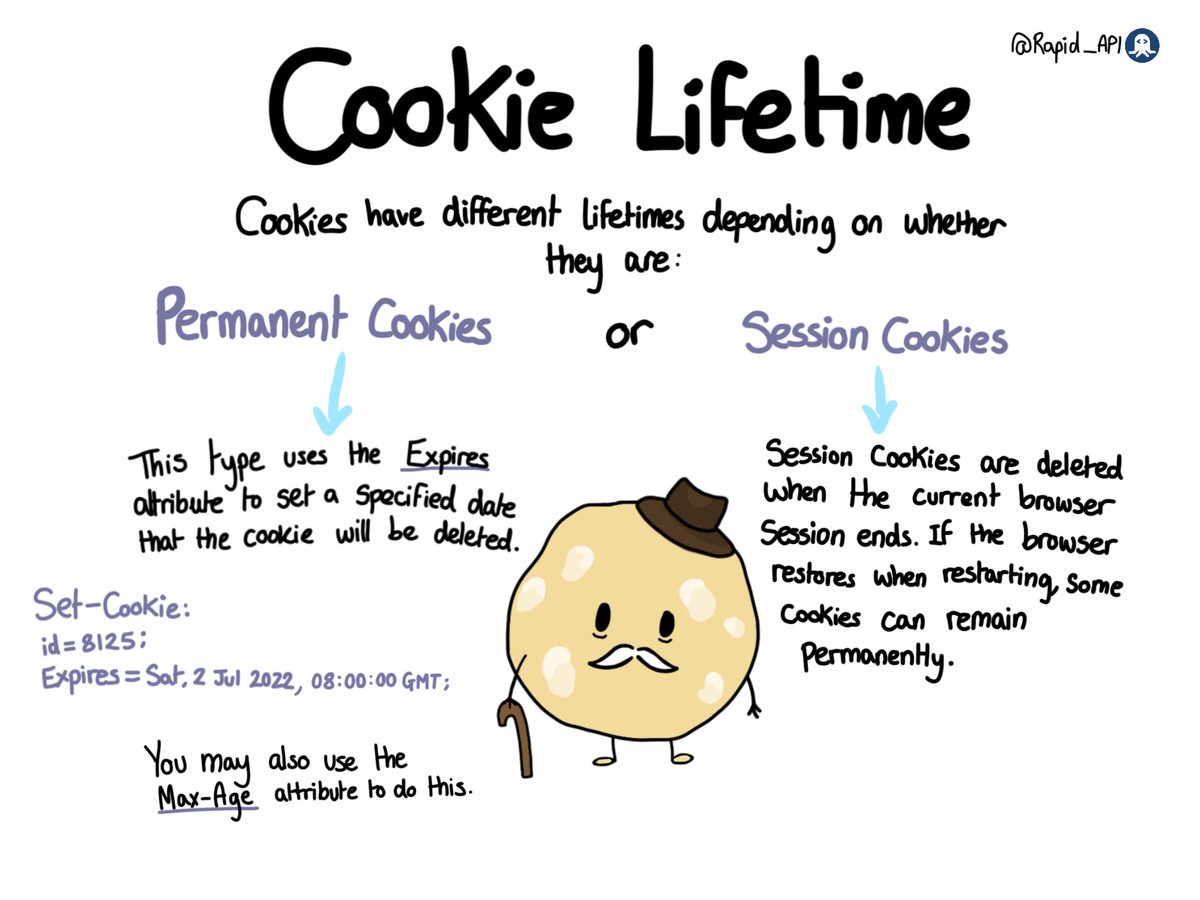 @Rapid_API
Cookie Lifetime
Cookies have different lifetimes depending on whether
they are:
Permanent Cookies
or
Session Cookies
This type uses the Expires
attribute to set a specified date
that the cookie will be deleted.
Set-Cookie:
id=8125;
Expires=Sat, 2 Jul 2022, 08:00:00 GMT;
You may also use the
Max-Age attribute to do this.
Session Cookies are deleted
when the current browser
Session ends. If the browser
restores when restarting, some
Cookies can remain
permanently.